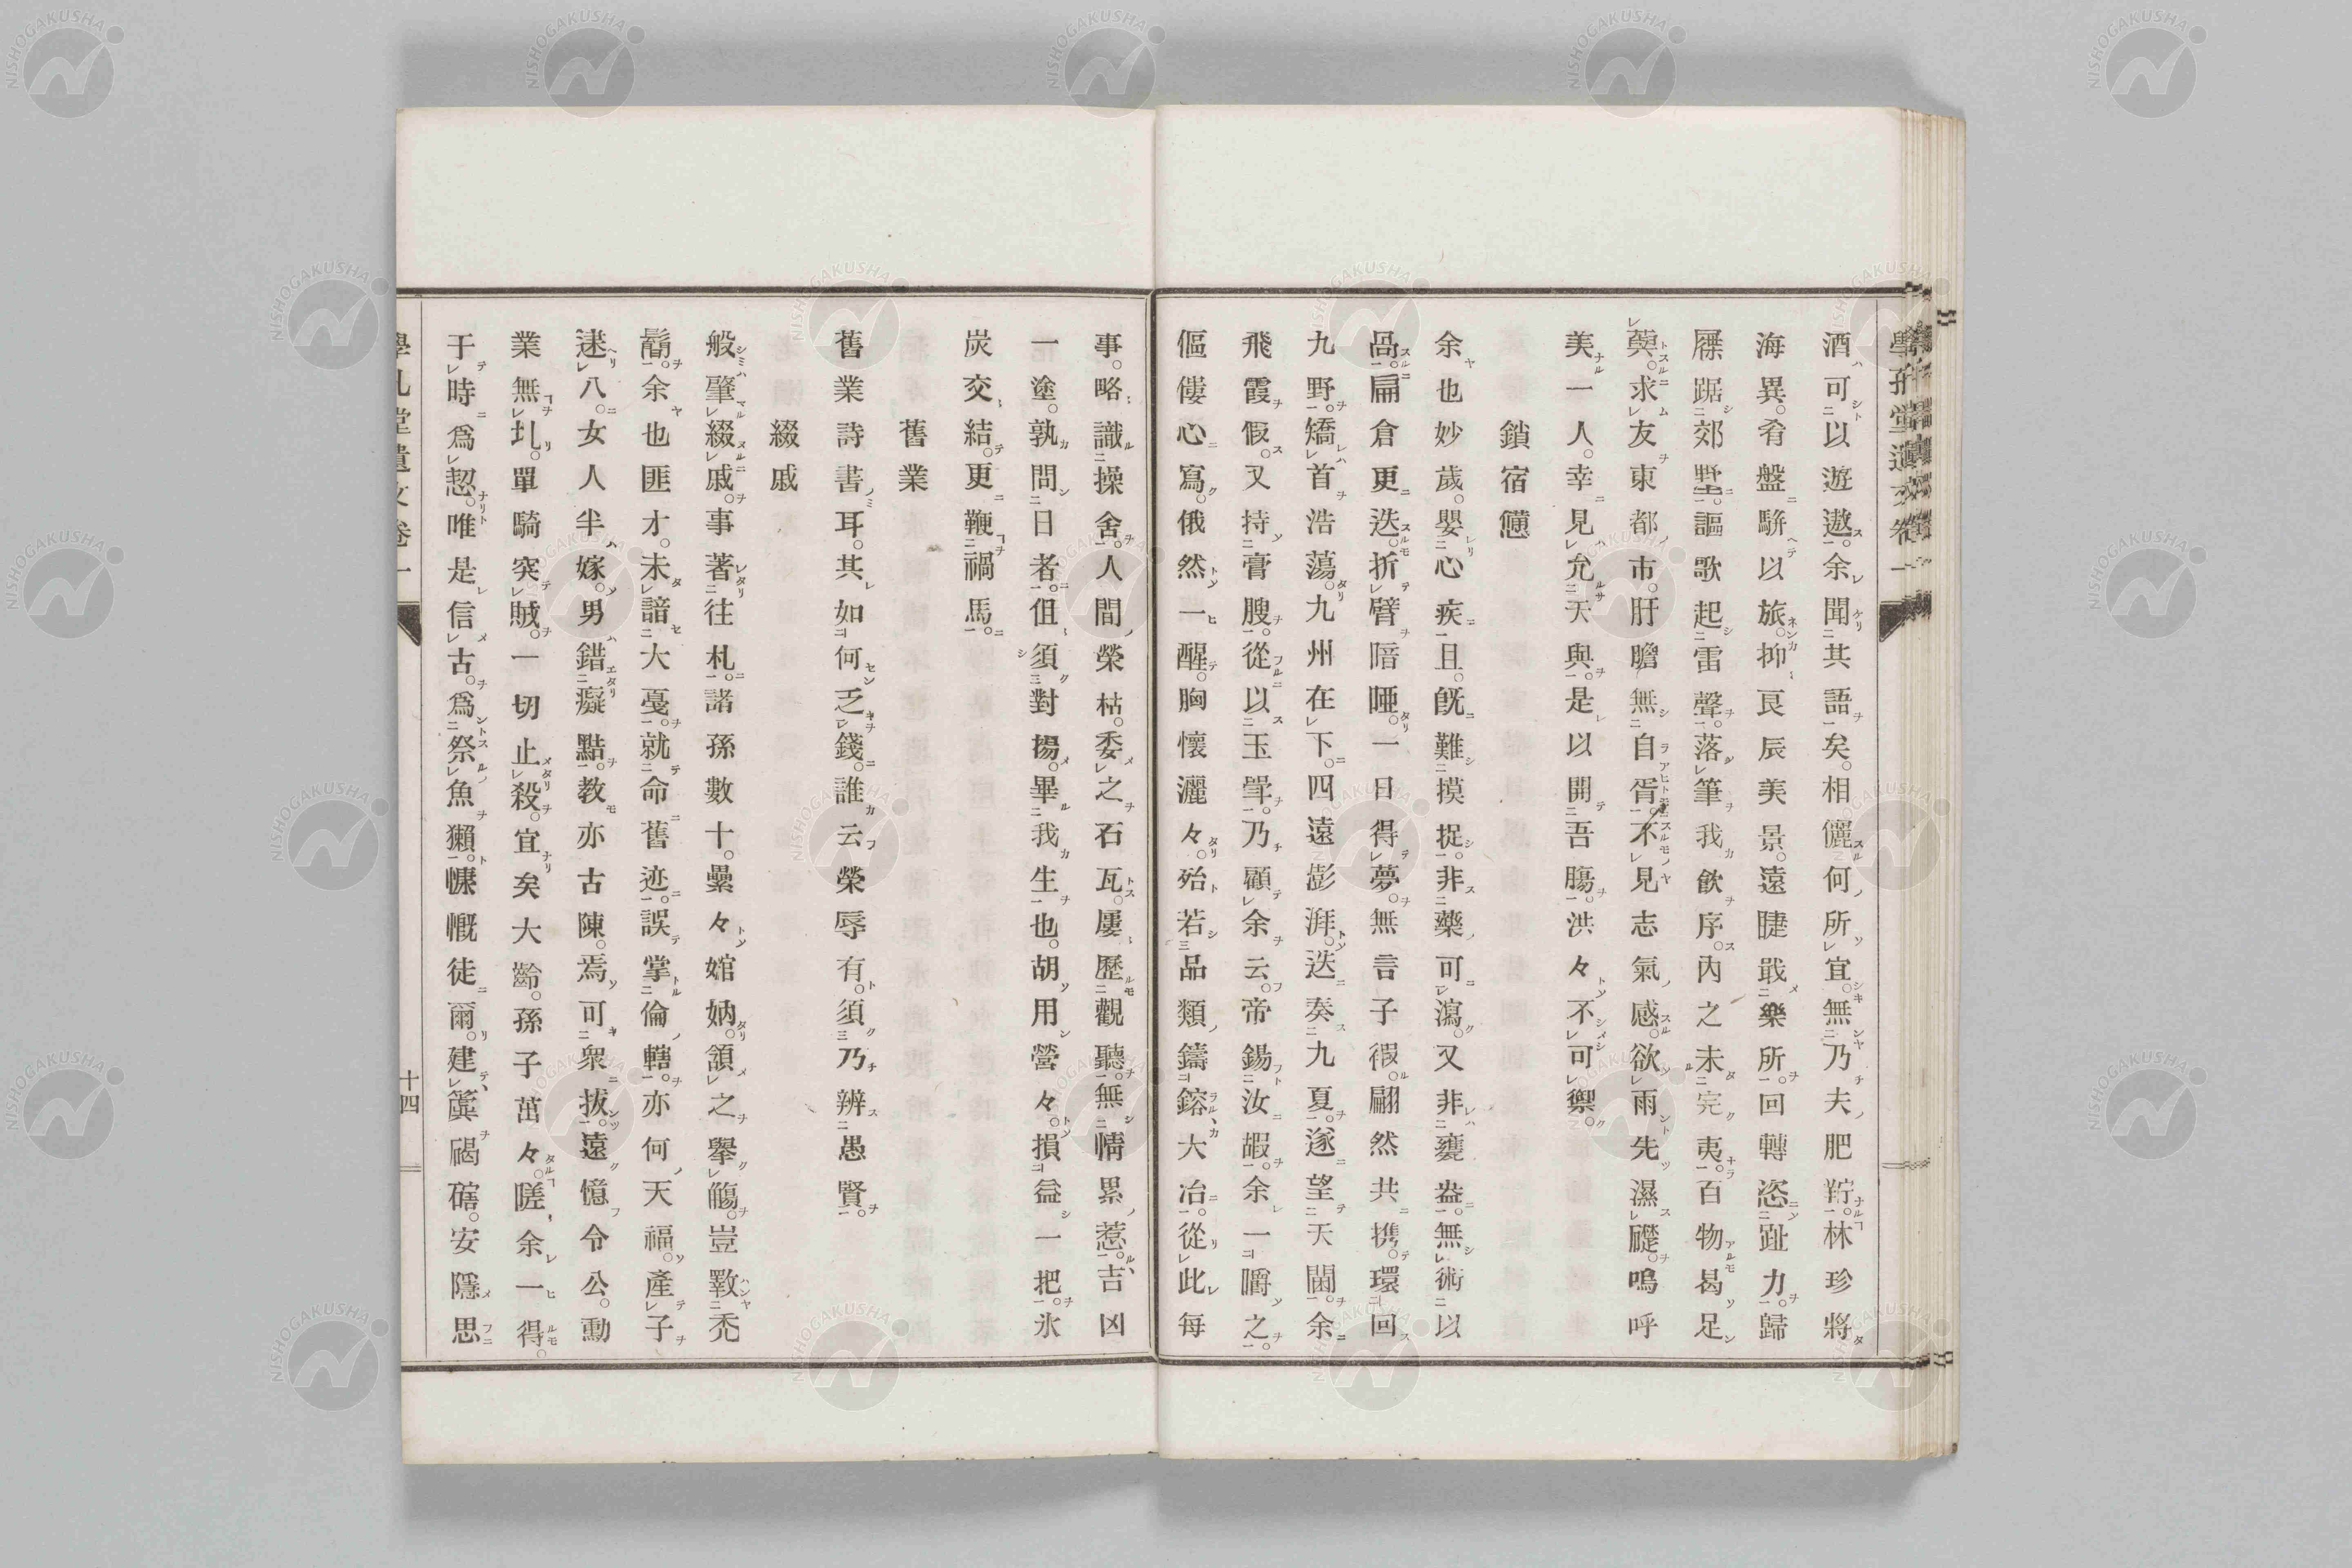 酒可以遊遨。余聞共語矣。相儷何所。宜無乃夫肥羜。林珍將
海異。肴盤駢以旅。抑良辰美景。遠睫戢樂所。回轉恣趾力。歸
屧踞郊墅。謳歌起雷聲。落筆我飲序。內之未完夷。百物曷足
藇。求友東都市。肝膽無自胥。不見志氣感。欲雨先濕礎。嗚呼
美一人。幸見允天與。是以開吾膓。洪々不可禦。
鎖宿憊
余也妙歲。嬰心疾且。旣難摸捉。非藥可瀉。又非甕盎。無術以
咼。扁倉更迭。折臂暗啞。一日得夢。無言子徦。翩然共携。環回
九野。矯首浩蕩。九州在下。四遠彭湃。迭奏九夏。遂望天閫。余
飛霞假。又持膏膄。從以玉斝。乃顧余云。帝錫汝嘏。余一嚼之。
傴僂心寫。俄然一醒。胸懷灑々。殆若品類鑄鎔大冶。從此每
事。略識操舍。人間榮枯。委之石瓦。屢歷觀聽。無情累惹。吉凶
一塗。孰問日者。但須對揚。畢我生也。胡用營々。損益一把。氷
炭交結。更鞭禍馬。
舊業
舊業詩書耳。其如何乏錢。誰云榮辱有。須乃辨愚賢。
綴戚
般肇綴戚。事著往札。諸孫數十。纍々婠妠。頷之擧觴。豈斁禿
鬜。余也匪才。未諳大戞。就命舊迹。誤掌倫轄。亦何天福。產子
逑八。女人半嫁。男錯癡黠。敎亦古陳。焉可衆拔。遠憶令公。勳
業無圠。單騎突賊。一切止殺。宜矣大齡。孫子茁々。嗟余一得。
于時爲恝。唯是信古。爲祭魚獺。慷慨徒爾。建簴碣磍。安隱思
十四